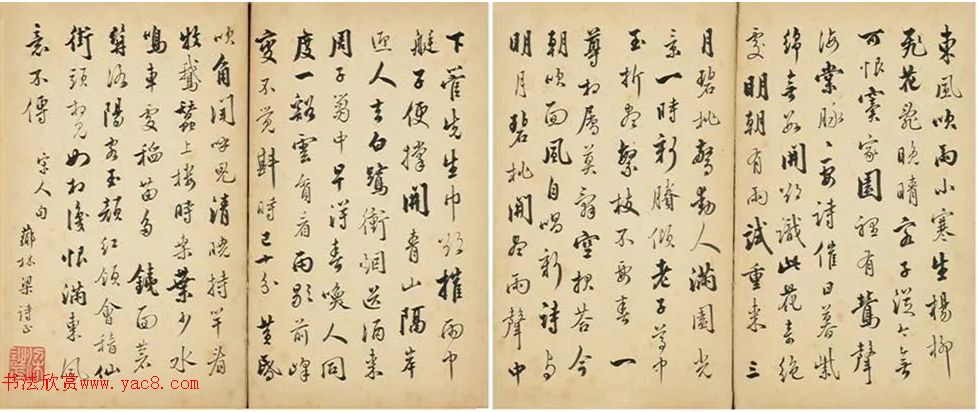 東風吹雨小寒生楊柳
飛花亂晚晴客子從今無
可恨竇家園裡有鶯聲
海棠脉〻要詩催日暮紫
綿無數開欲識此花奇絕
處明朝有雨試重來 三
月碧桃驚動人滿園光
景一時新賸傾老子尊中
玉折盡繁枝不要春 一
尊相屬莫辭空報答今
朝吹面風自唱新詩與
明月碧桃開盡雨聲中
先生巾欲摧雨中
艇子便撐開青山隔岸
迎人去白鷺衝烟送酒來
周子篘中早得春喚人同
度一谿雲貪看雨歇前峰
變不覺斟時已十分 黃昏
吹角聞呼鬼清曉持竿看
牧鵝蠶上樓時桑葉少水
鳴車處稻苗多 鐵面蒼
髯洛陽客玉顏紅領會稽仙
街頭相見如相識恨滿東風
意不傳 宋人句
薌林梁詩正
书法欣赏www.yac8.com